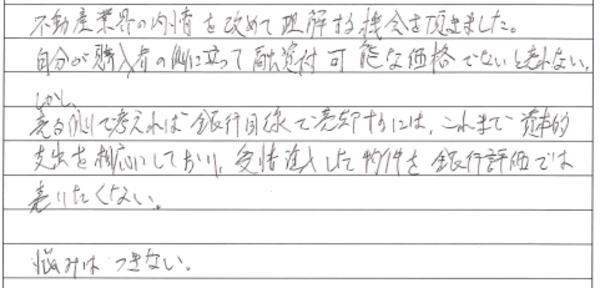 不動産業界の内情を改めて理解する機会を頂きました。
自分が購入者の側に立って融資付可能な価格でないと売れない。
しかし
売る側で考えれば銀行目線で売却するには、これまで資本的
支出を相応にしており、受情注入した物件を銀行評価では
売りたくない。
悩みはつきない。